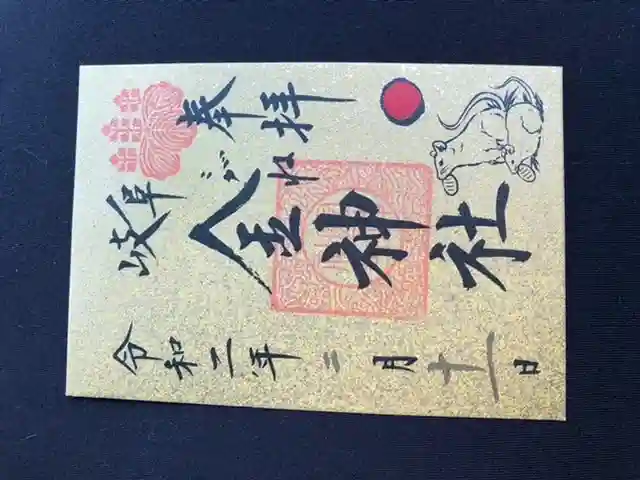 奉拝
岐阜 金神社
令和二年二月十一日